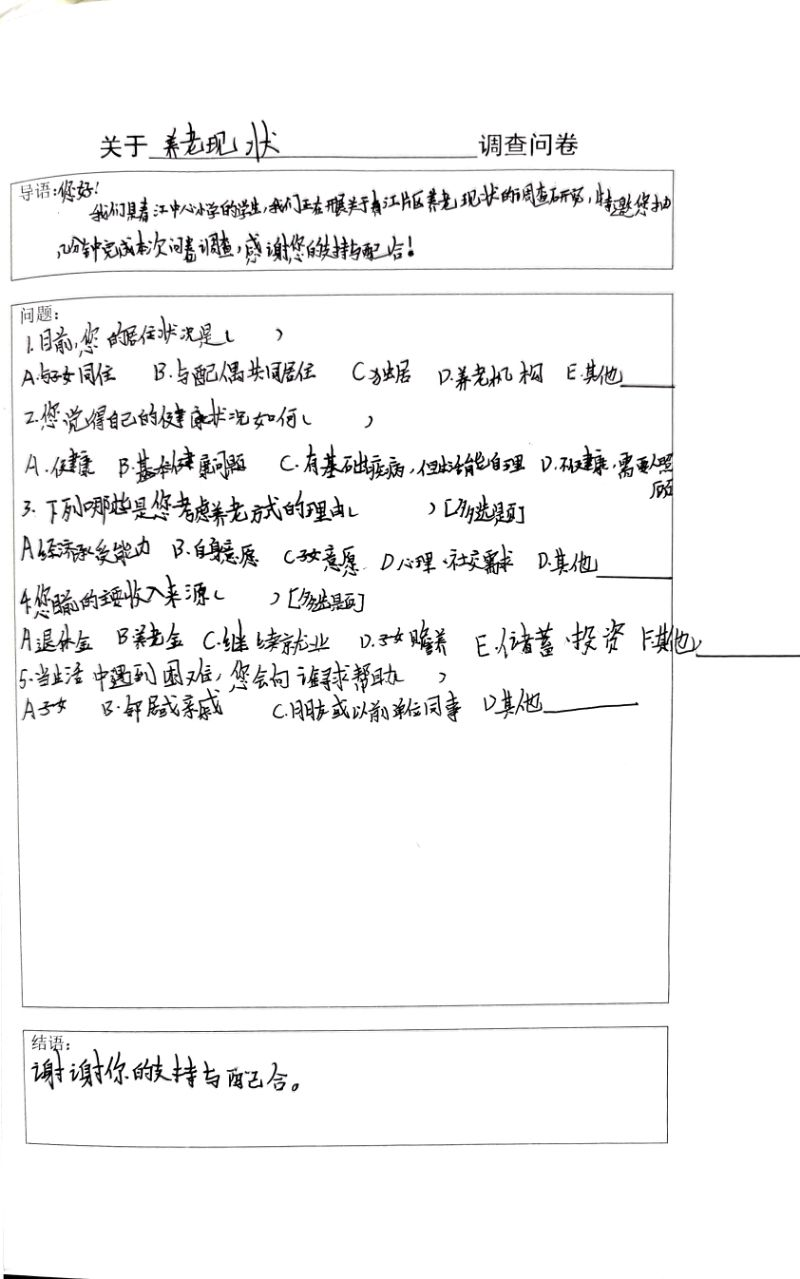 关于 养老现状 调查问卷
导语:您好!
我们是春江中心小学的学生,我们正在开展关于春江片区养老现状的调查研究,特邀您抽
几分钟完成本次问卷调查,感谢您的支持与配合!
问题:
1.目前,您的居住状况是( )
A.与子女同住 B.与配偶共同居住 C独居 D.养老机构 E.其他____
2.您觉得自己的健康状况如何( )
A.健康 B.基本健康问题 C.有基础疾病,但生活能自理 D.不健康,需要人照
顾
3.下列哪些是您考虑养老方式的理由( )[多选题]
A经济承受能力 B.自身意愿 C子女意愿 D心理、社交需求 D.其他____
4.您目前的主要收入来源( )[多选题]
A退休金 B养老金 C.继续就业 D.子女赡养 E.储蓄、投资 F.其他____
5.当生活中遇到困难,您会向谁寻求帮助( )
A子女 B.邻居或亲戚 C.朋友或以前单位同事 D其他____
结语:
谢谢你的支持与配合。